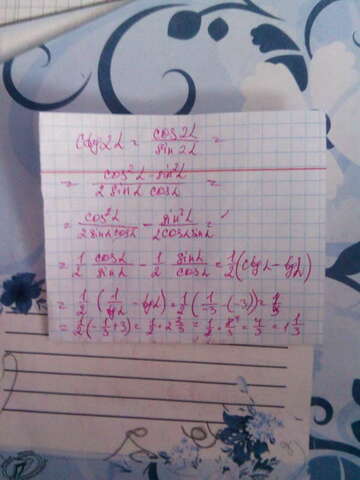 ctg2α = cos2α/sin2α =
= (cos²α - sin²α)/(2 sinα cosα) =
= cos²α/(2 sinα cosα) - sin²α/(2cosα sinα) =
= 1/2 · cosα/sinα - 1/2 · sinα/cosα = 1/2 (ctgα - tgα)
= 1/2 (1/tgα - tgα) = 1/2 (1/-3 - (-3)) =
= 1/2 (-1/3 + 3) = 1/2 · 2 2/3 = 1/2 · 8/3 = 4/3 = 1 1/3